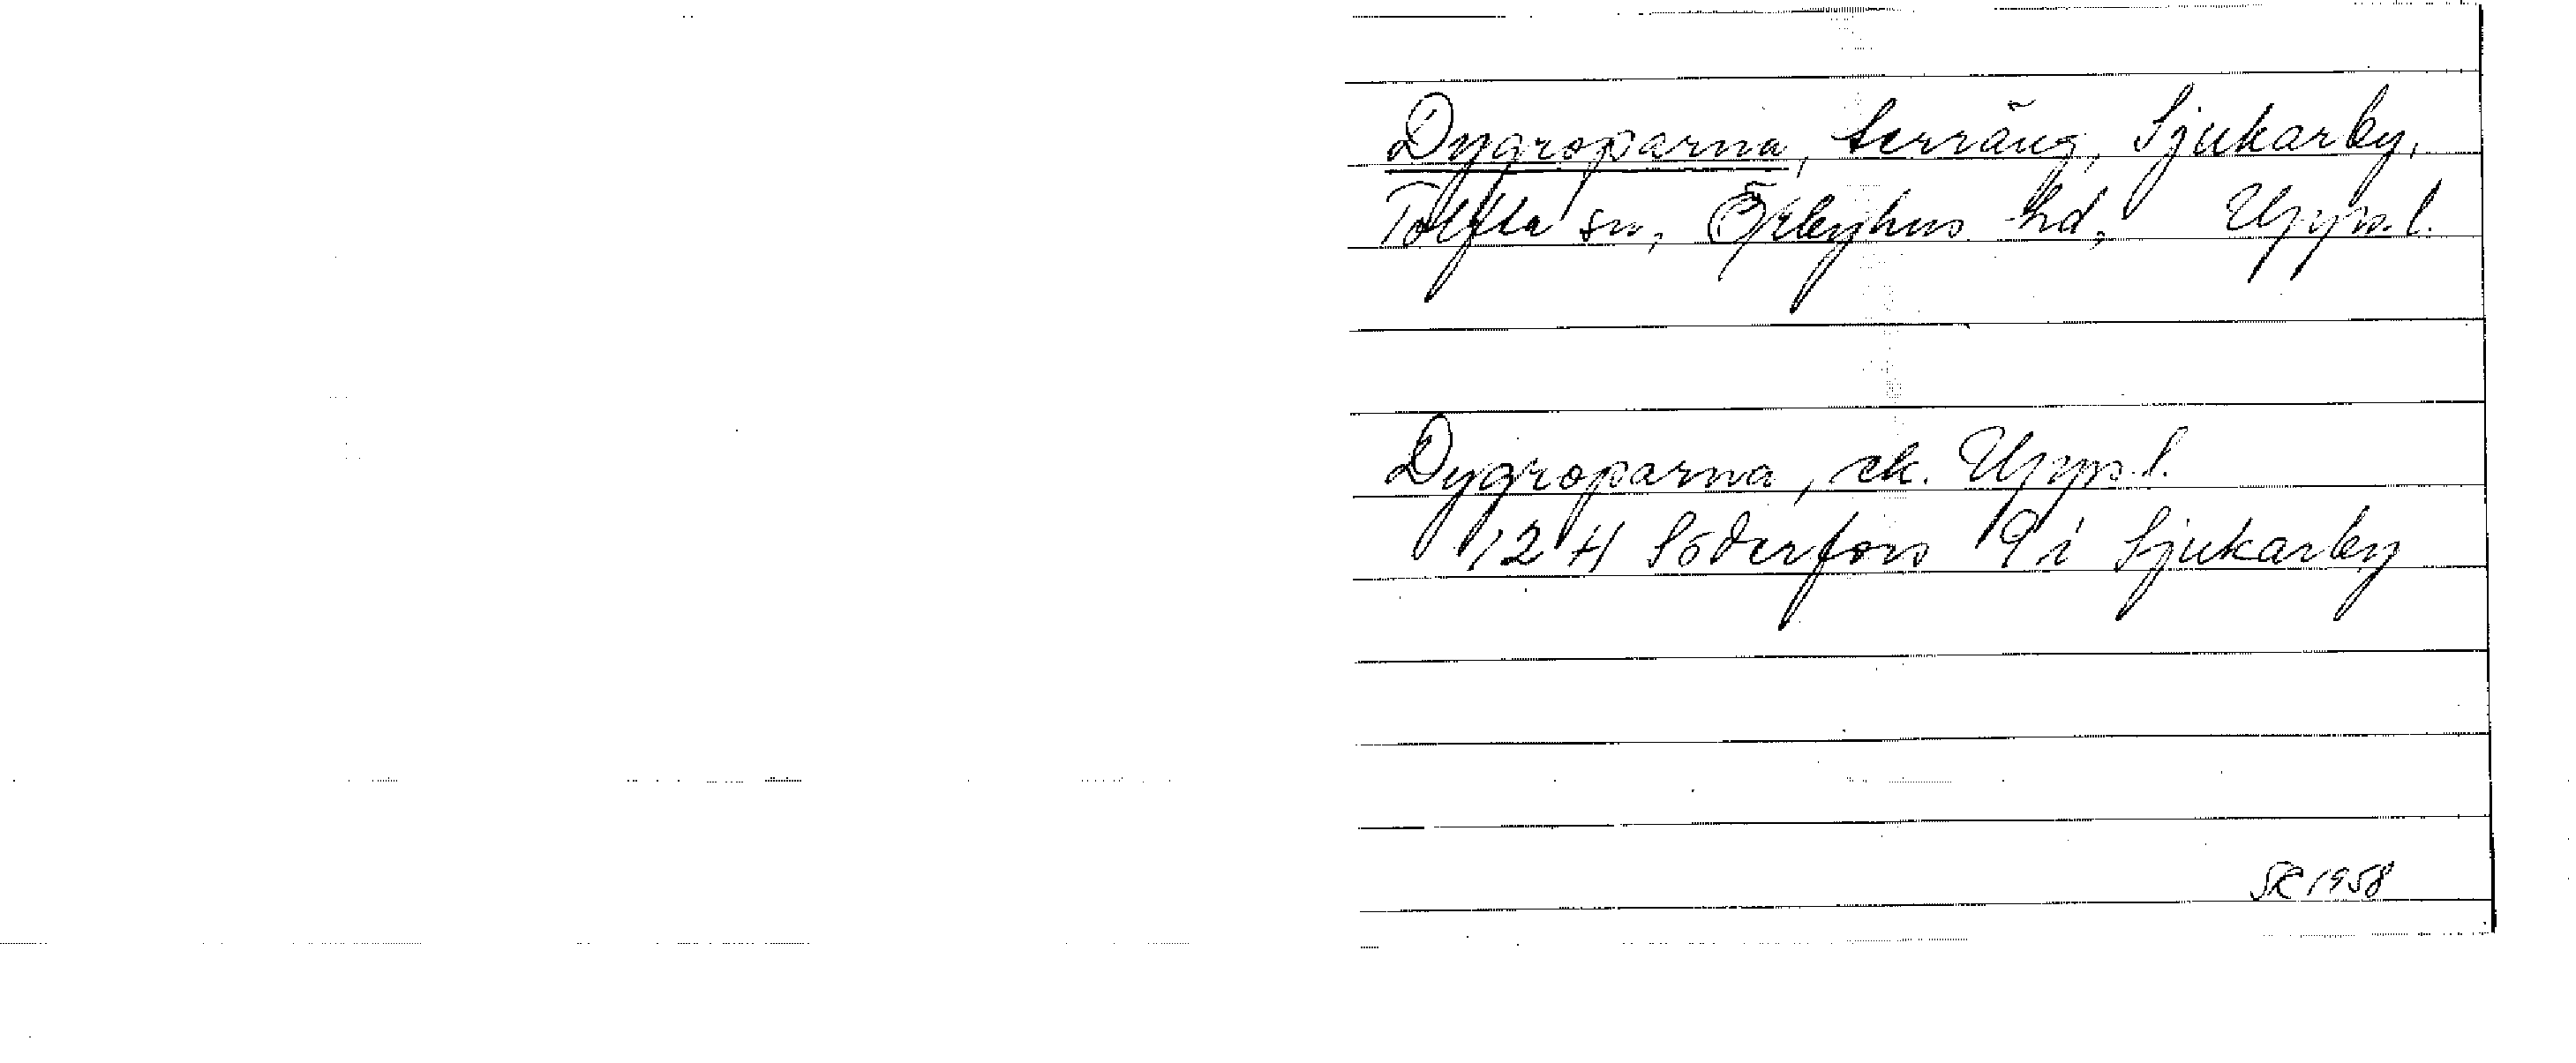 Dygroparna, terräng, Sjukarby,
Tolfta sn, Örbyhus hd, Uppl.
Dygroparna, ek. Uppl.
12 H Söderfors 9 i Sjukarby
SR 1958